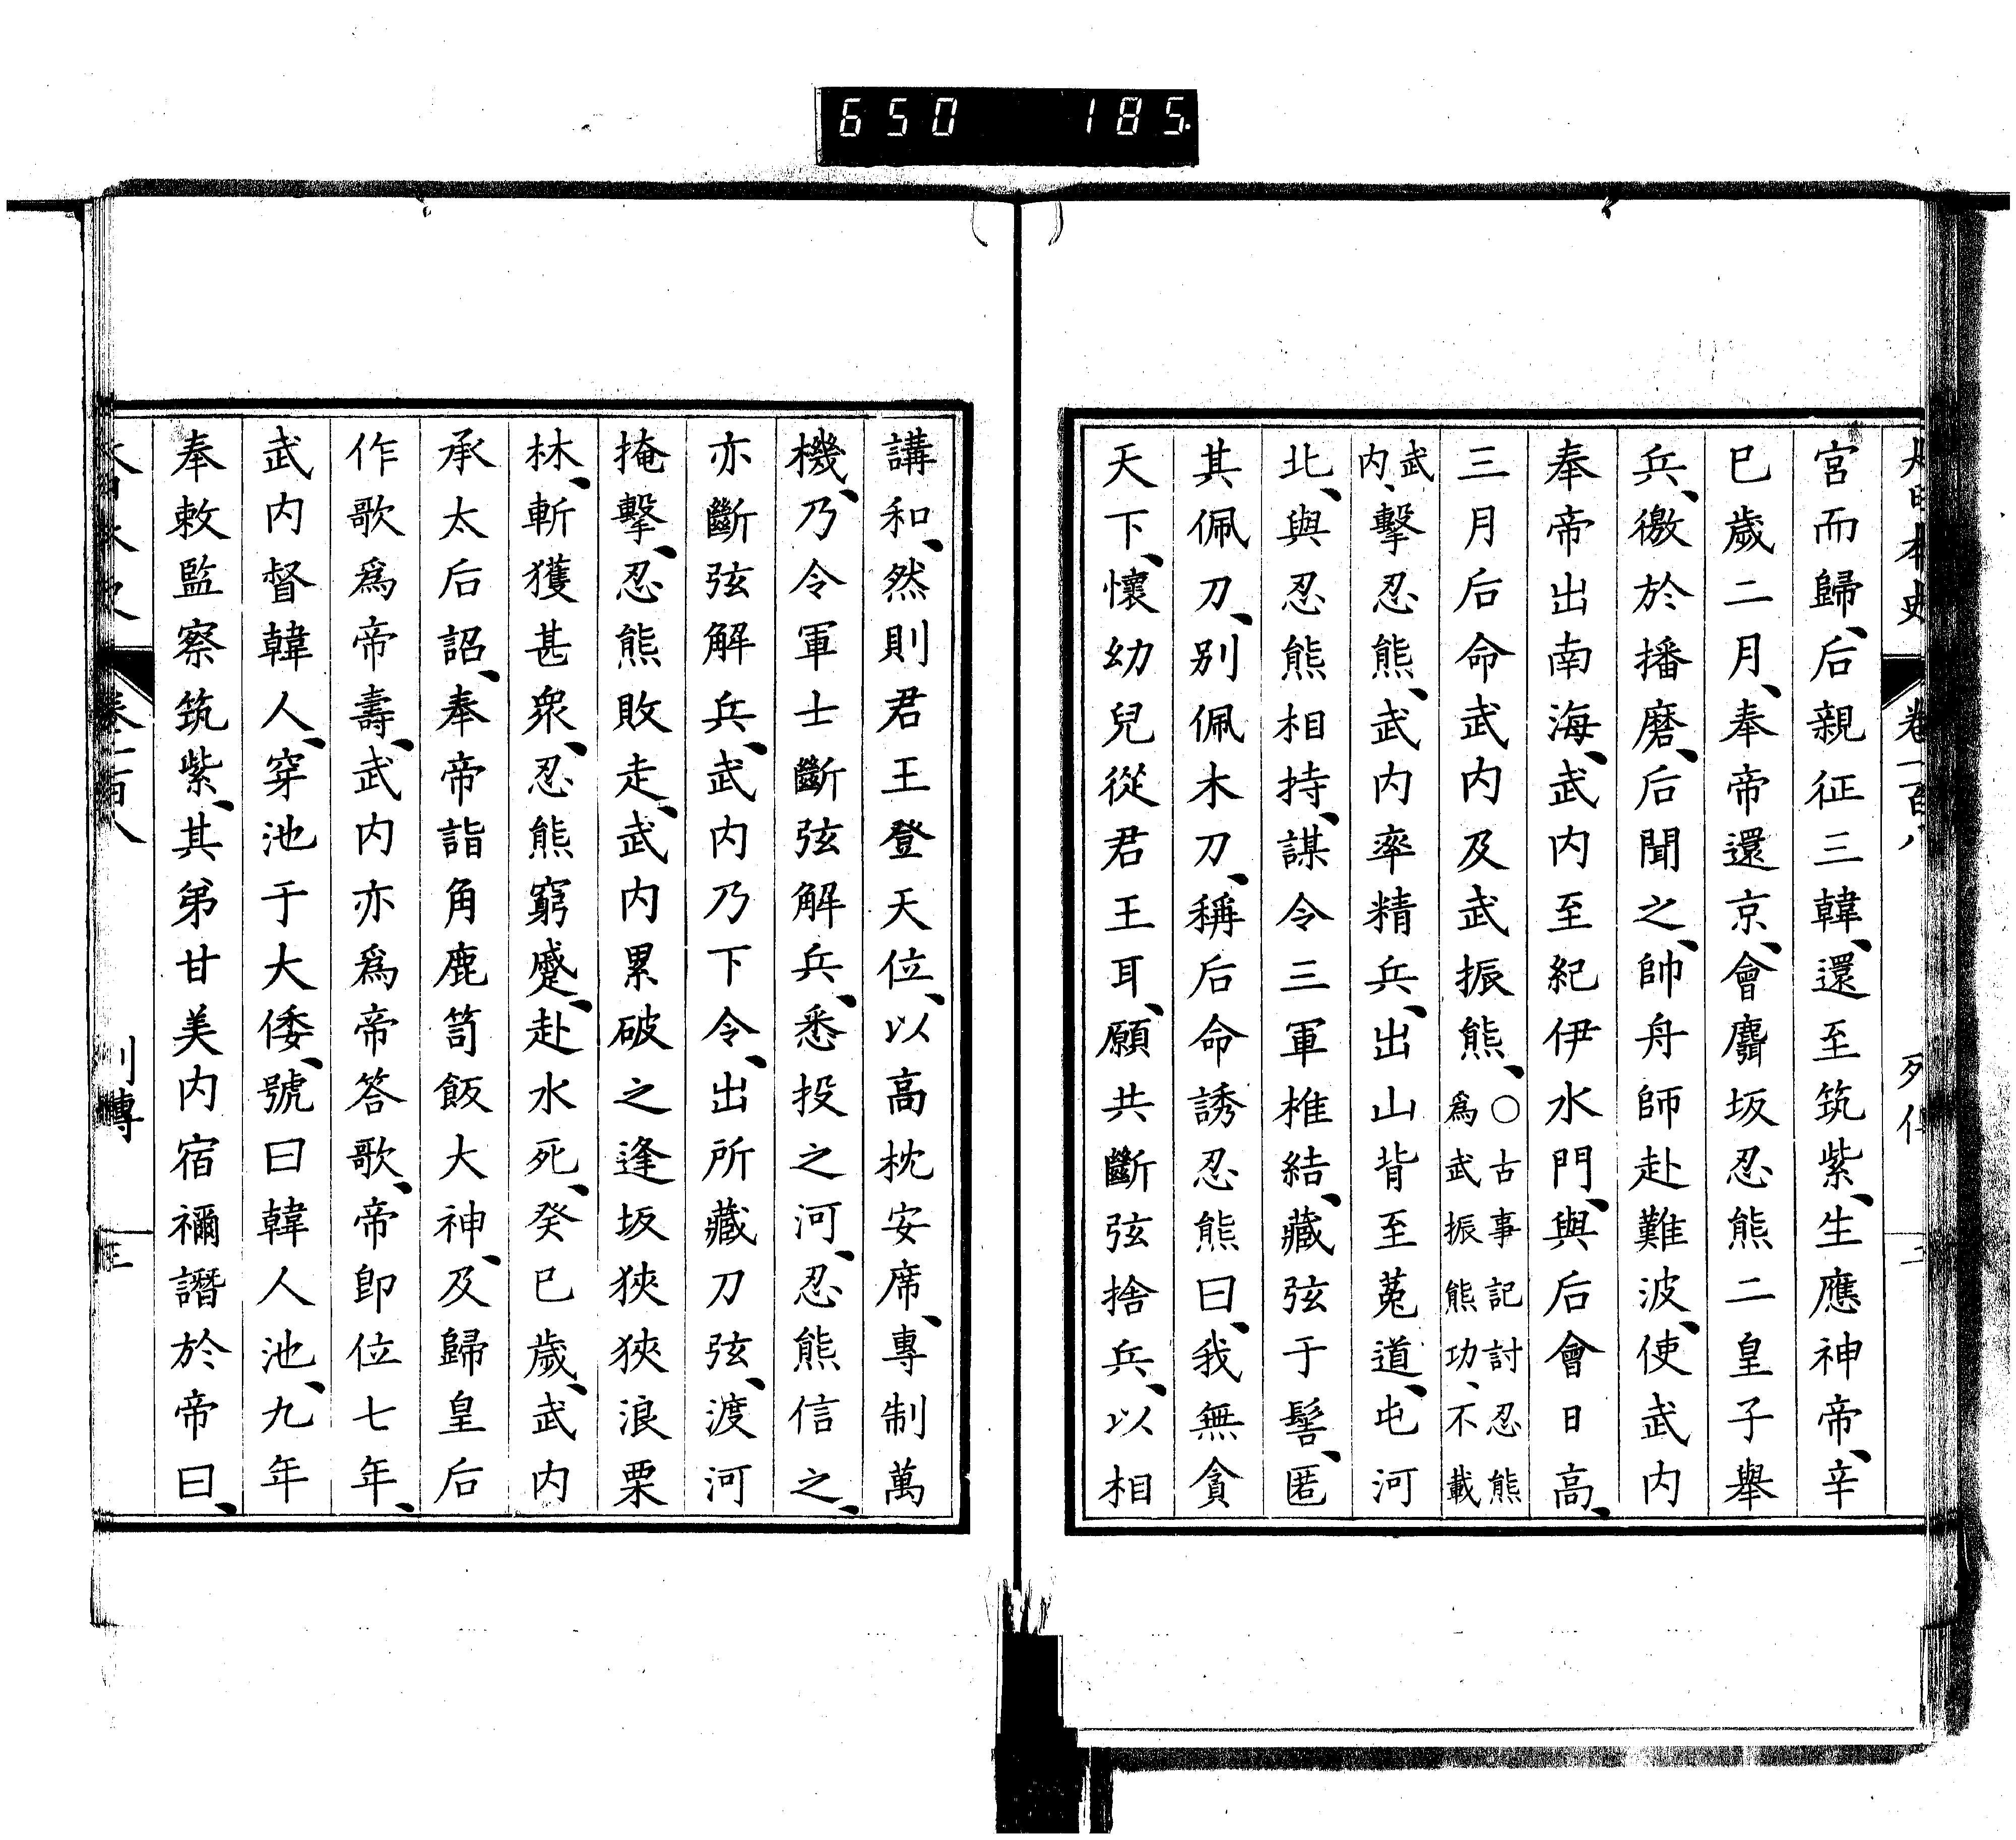 650 185
宮而歸、后親征三韓、還至筑紫、生應神帝、辛
巳歲二月、奉帝還京、會麛坂忍熊二皇子舉
兵、徼於播磨、后聞之、帥舟師赴難波、使武内
奉帝出南海、武内至紀伊水門、與后會日高、
三月后命武内及武振熊、○古事記討忍熊
爲武振熊功、不載
武
内、擊忍熊、武内率精兵、出山背至菟道、屯河
北、與忍熊相持、謀令三軍椎結、藏弦于髻、匿
其佩刀、別佩木刀、稱后命誘忍熊曰、我無貪
天下、懷幼兒從君王耳、願共斷弦捨兵、以相
講和、然則君王登天位、以高枕安席、專制萬
機、乃令軍士斷弦解兵、悉投之河、忍熊信之、
亦斷弦解兵、武内乃下令、出所藏刀弦、渡河
掩擊、忍熊敗走、武内累破之逢坂狹狹浪栗
林、斬獲甚衆、忍熊窮蹙、赴水死、癸巳歲、武内
承太后詔、奉帝詣角鹿笥飯大神、及歸皇后
作歌爲帝壽、武内亦爲帝答歌、帝卽位七年、
武内督韓人、穿池于大倭、號曰韓人池、九年
奉敕監察筑紫、其弟甘美内宿禰譖於帝曰、